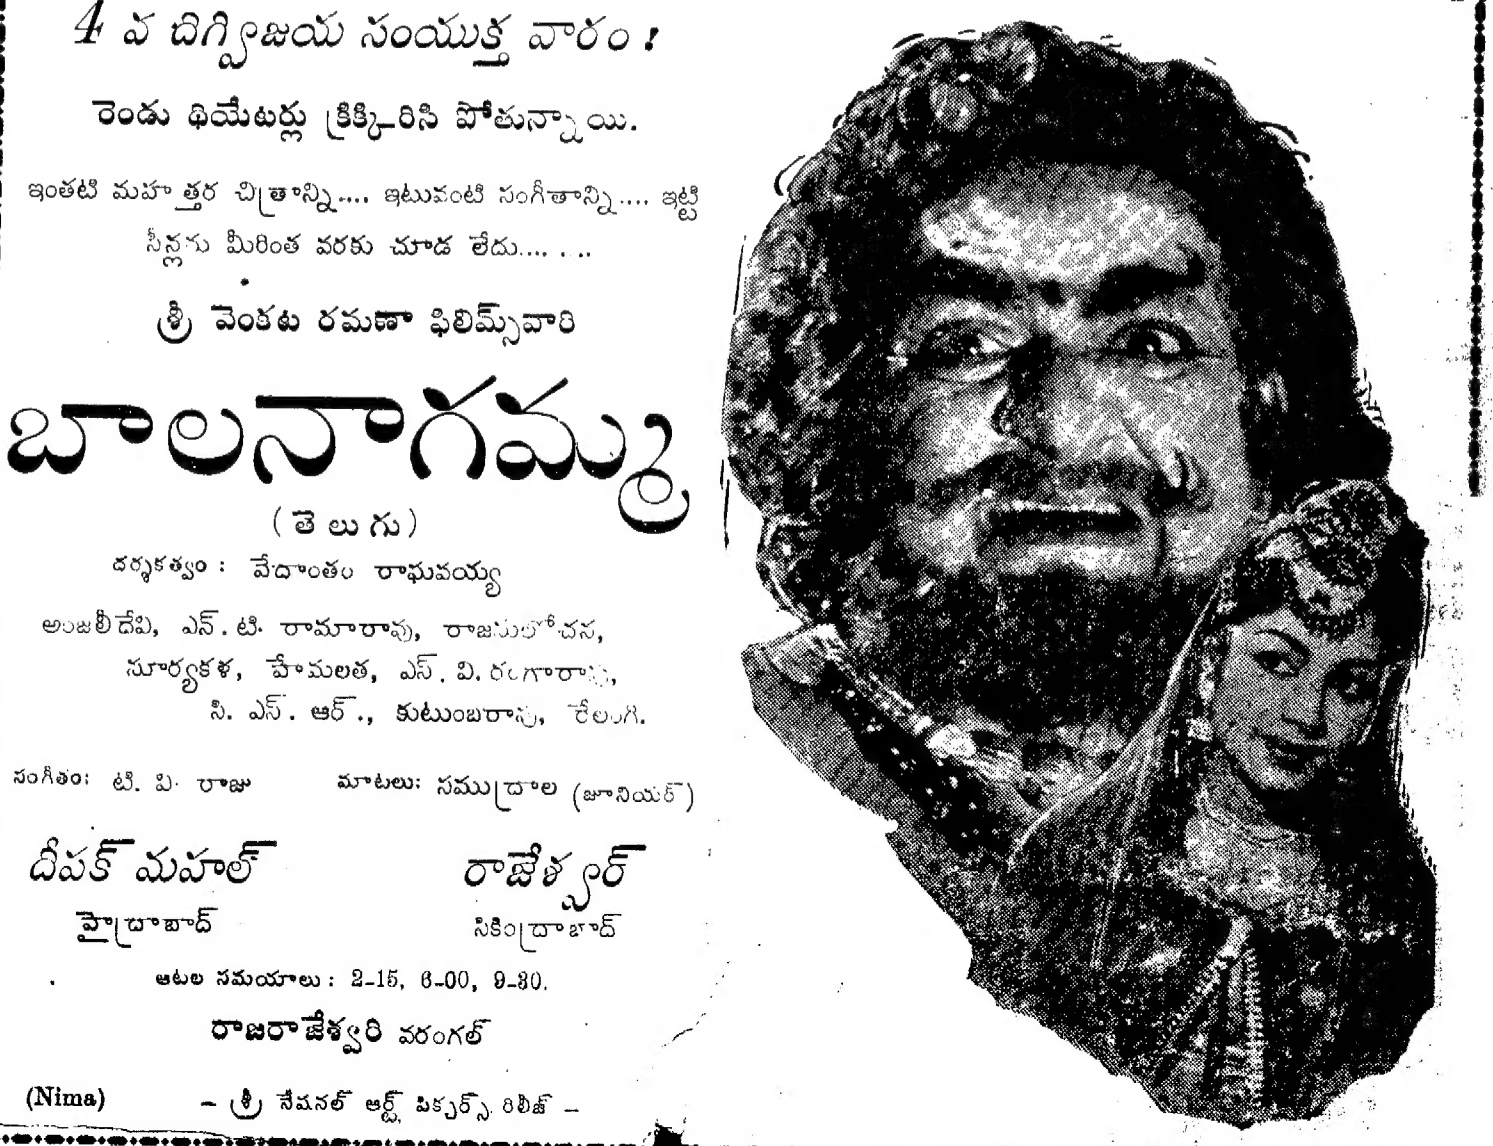 4 వ దిగ్విజయ సంయుక్త వారం !
రెండు థియేటర్లు క్రిక్కిరిసి పోతున్నాయి.
ఇంతటి మహత్తర చిత్రాన్ని.... ఇటువంటి సంగీతాన్ని.... ఇట్టి
సీన్లను మీరింత వరకు చూడ లేదు.... . ..
శ్రీ వెంకట రమణా ఫిలిమ్స్‌వారి
బాలనాగమ్మ
( తె లు గు )
దర్శకత్వం : వేదాంతం రాఘవయ్య
అంజలీదేవి, ఎన్. టి. రామారావు, రాజసులోచన,
సూర్యకళ, హేమలత, ఎస్. వి. రంగారావు,
సి. ఎస్. ఆర్., కుటుంబరావు, రేలంగి.
సంగీతం: టి. వి. రాజు మాటలు: సముద్రాల (జూనియర్)
దీపక్ మహల్ రాజేశ్వర్
హైద్రాబాద్ సికింద్రాబాద్
ఆటల సమయాలు : 2-15, 6-00, 9-30.
రాజరాజేశ్వరి వరంగల్
(Nima) – శ్రీ నేషనల్ ఆర్ట్ పిక్చర్స్ రిలీజ్ –